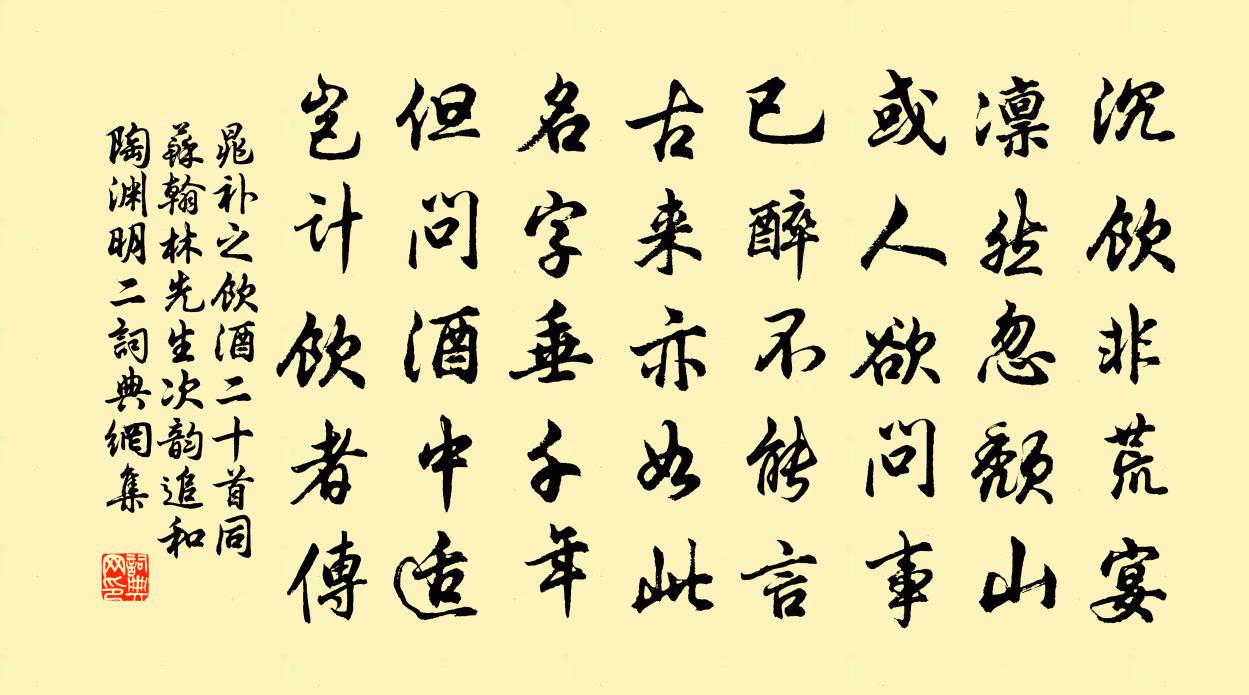 沉飲非荒宴
凛然忽頽山
或人欲問事
已醉不能言
古来亦如此
名字垂千年
但問酒中适
岂计飲者傳
晁补之飲酒二十首同
蘇翰林先生次韵追和
陶渊明二詞典網集
詞典
网印